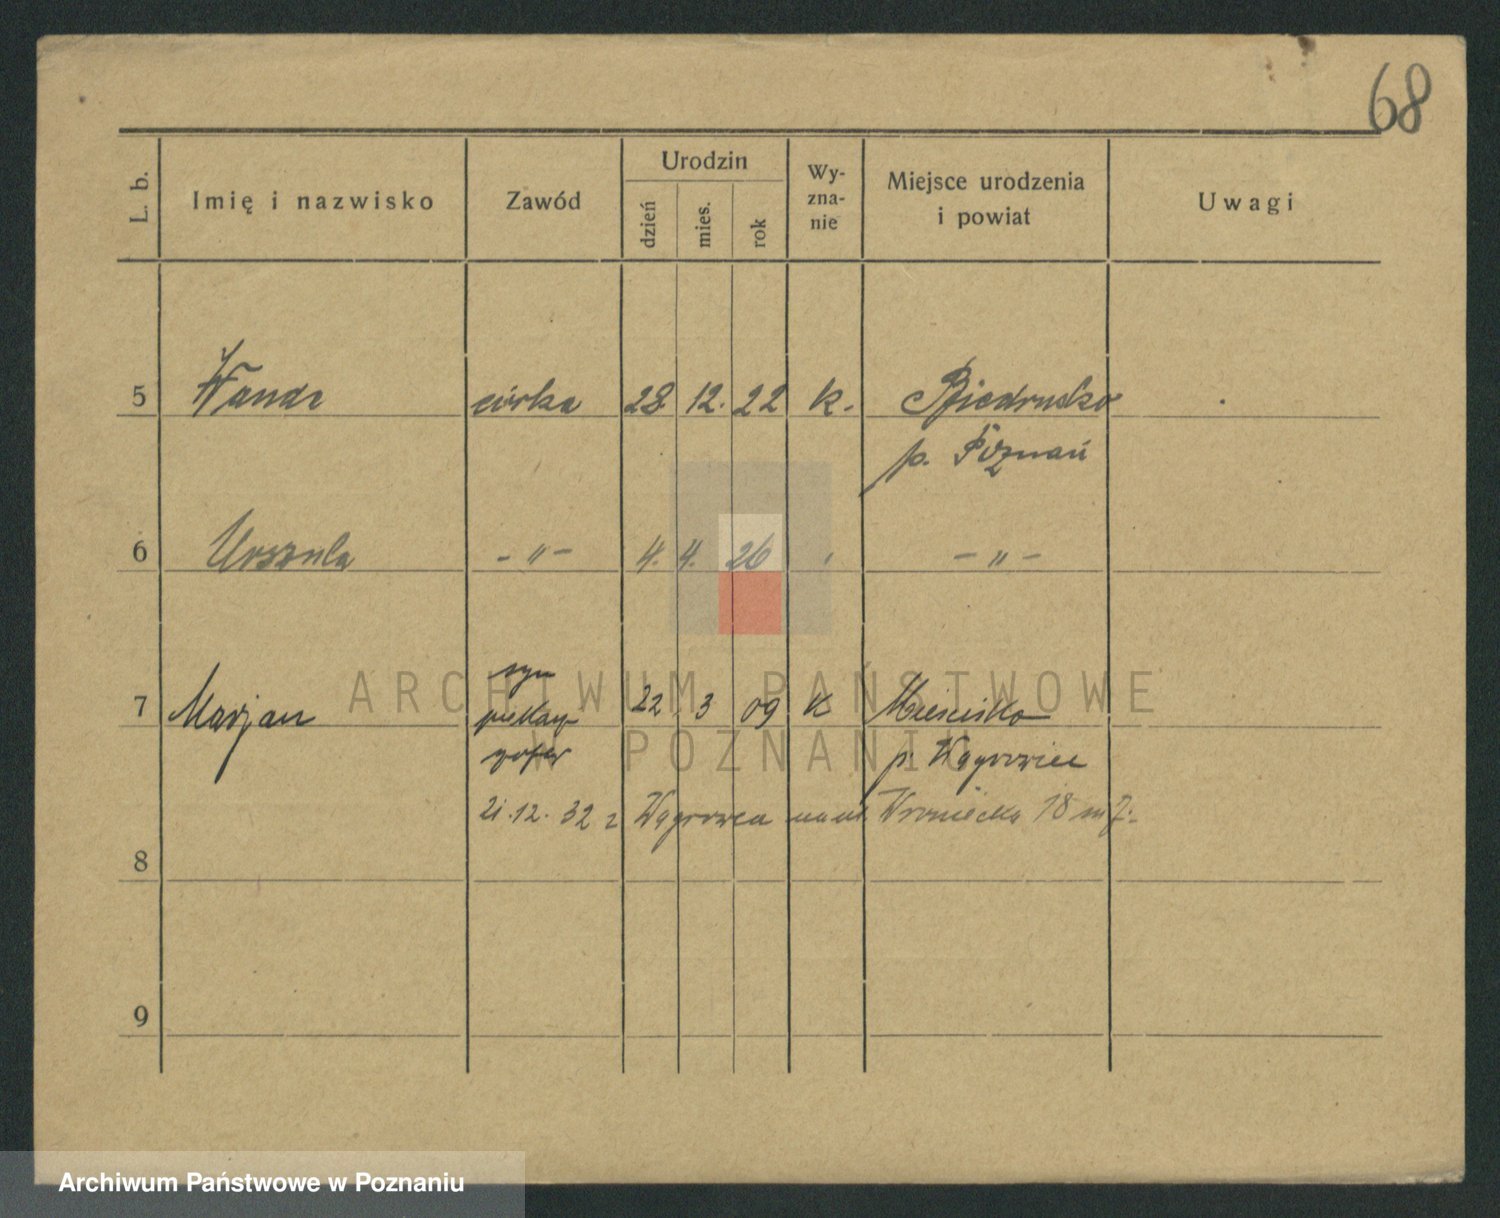 68
L. b.
Imię i nazwisko
Zawód
Urodzin
dzień
mies.
rok
Wy-
zna-
nie
Miejsce urodzenia
i powiat
Uwagi
5 Wanda córka 28. 12. 22 k. Biedrusko
p. Poznań
6 Urszula - " - 4. 4. 26 - " -
syn
7 Marjan 22 3 09 K Mieścisko
p. Wągrowiec
21.12.32 z Wągrowca Wroniecka 18 m 7.
8
9
ARCHIWUM PAŃSTWOWE
W POZNANIU
Archiwum Państwowe w Poznaniu